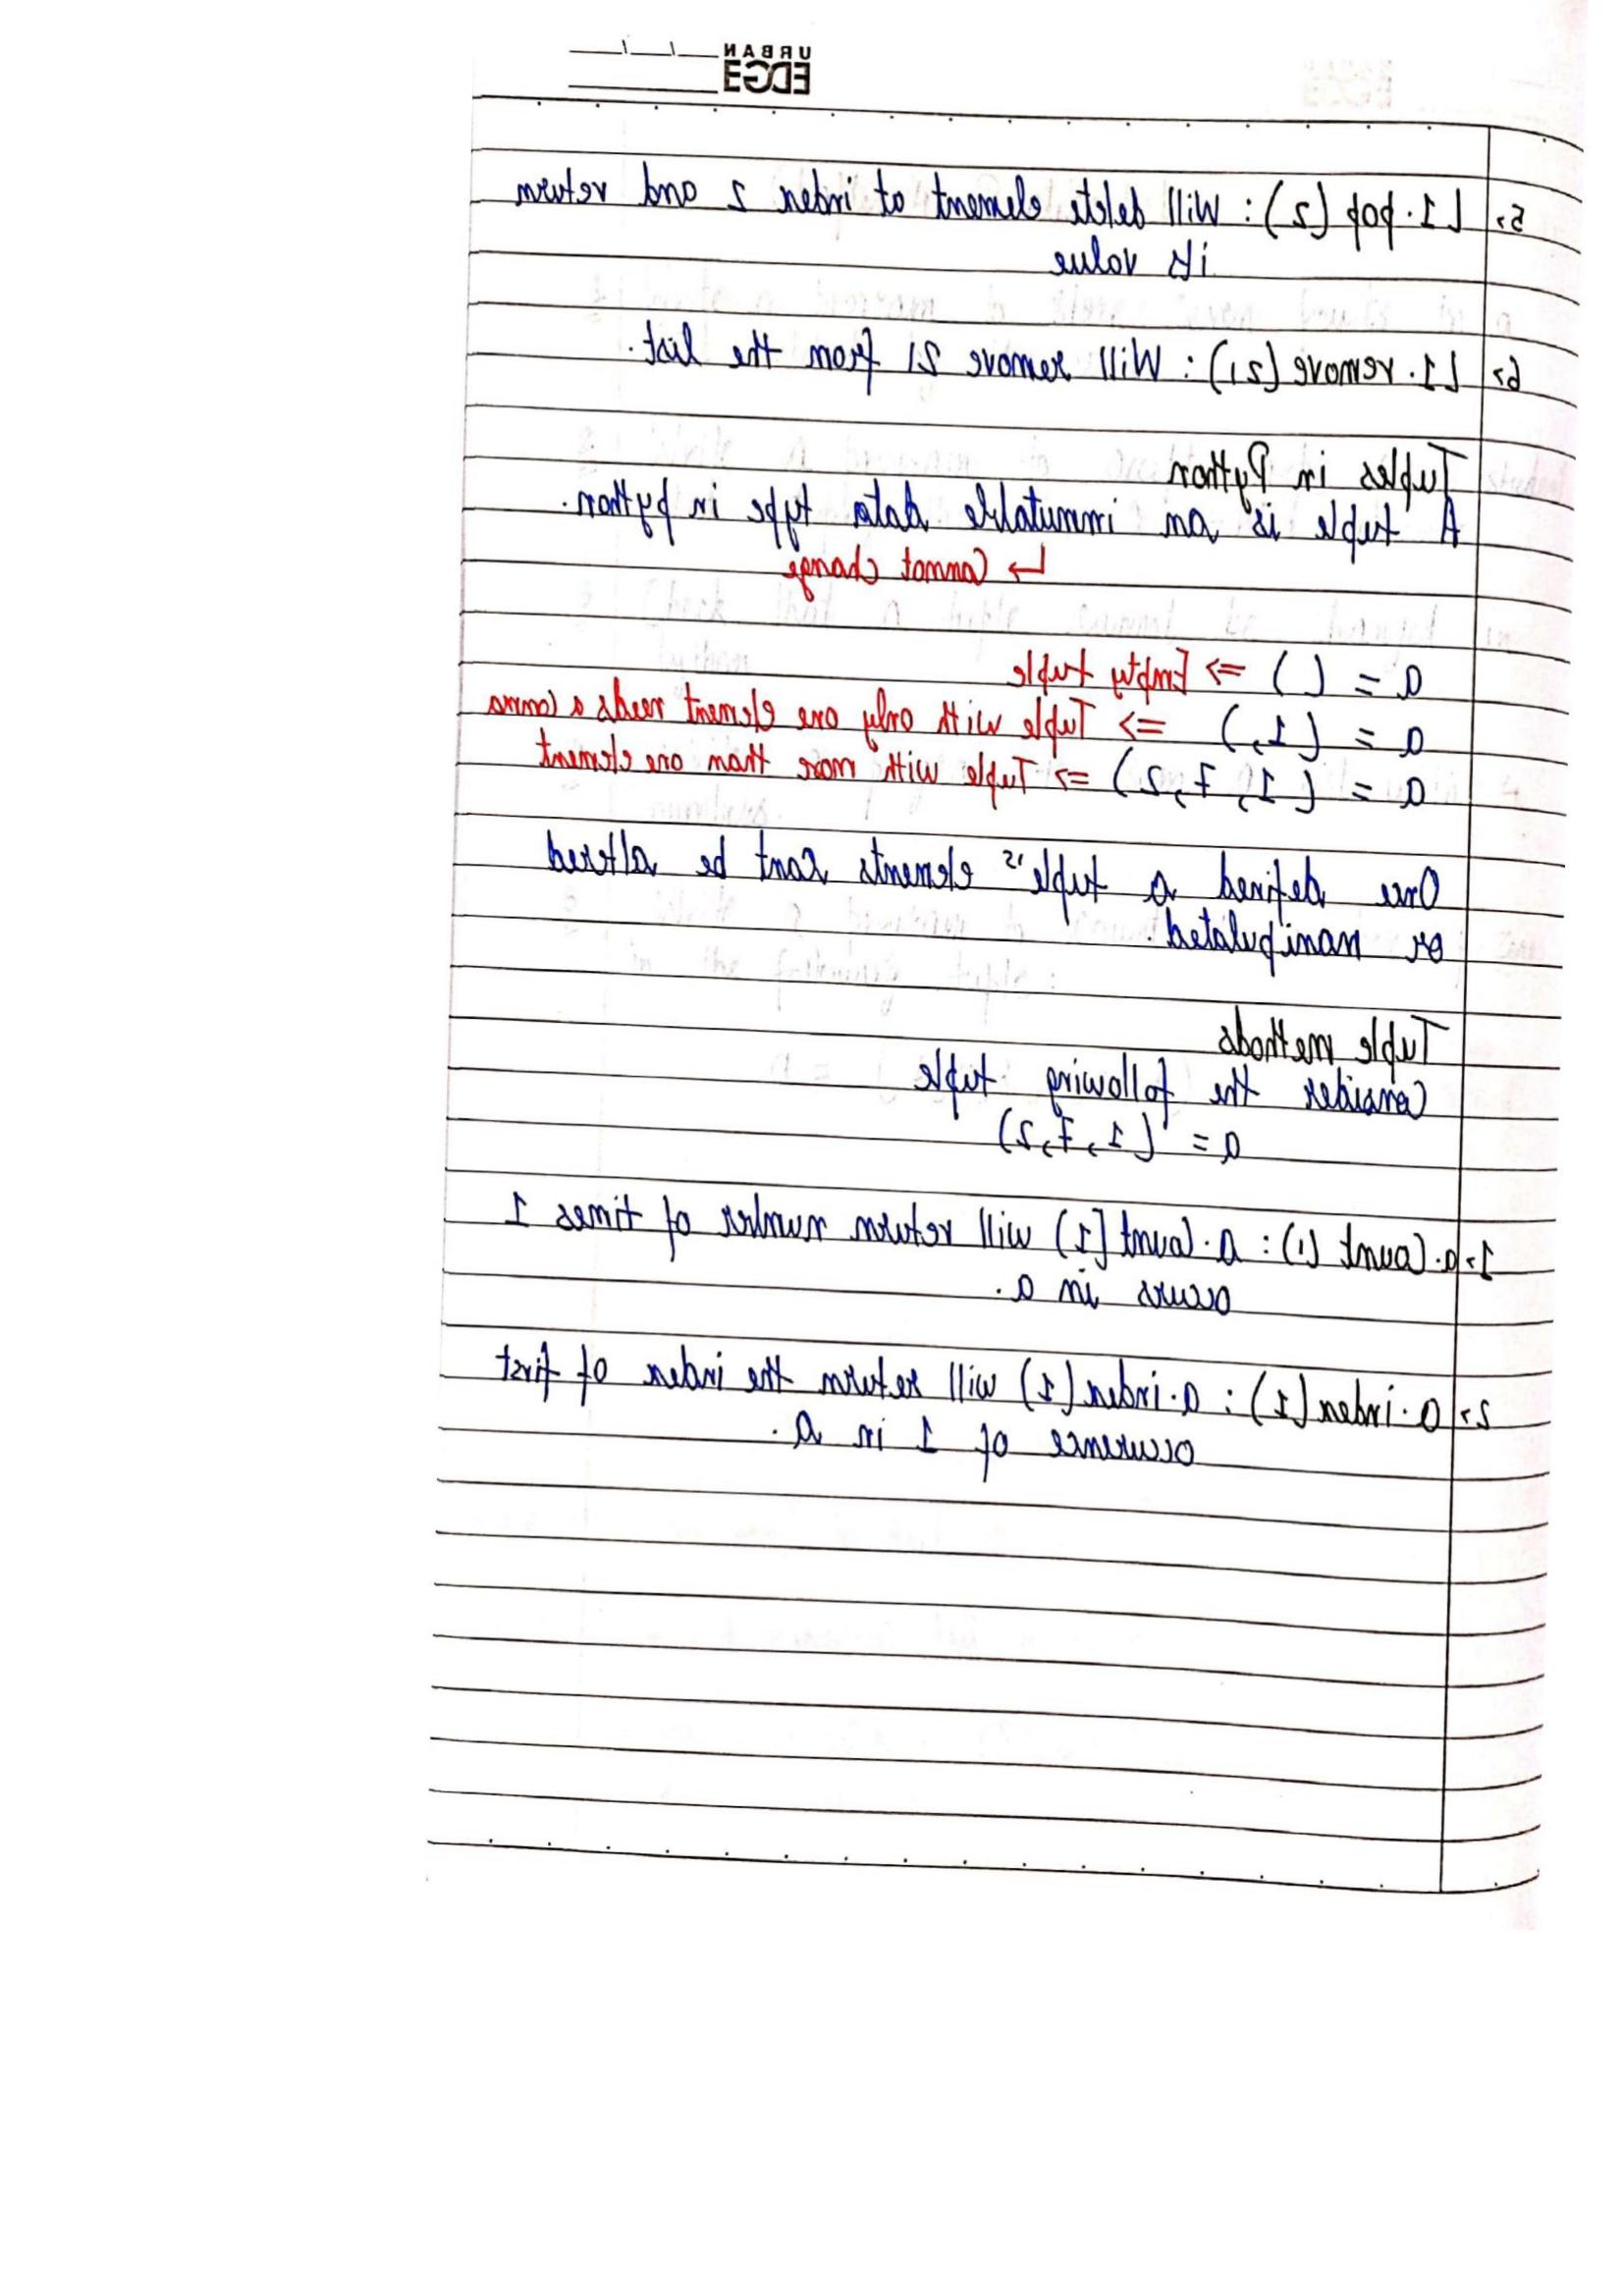 URBAN
EDGE
5> L1.pop(2): Will delete element at index 2 and return
its value
6> L1.remove(21): Will remove 21 from the list.
Tuples in Python
A tuple is an immutable data type in python.
↳ Cannot change
a = ( ) => Empty tuple
a = (1,) => Tuple with only one element needs a comma
a = (1, 7, 2) => Tuple with more than one element
Once defined a tuple's elements cant be altered
or manipulated.
Tuple methods
Consider the following tuple
a = (1, 7, 2)
1> a.Count (1): a.Count (1) will return number of times 1
occurs in a.
2> a.index(1): a.index(1) will return the index of first
occurence of 1 in a.